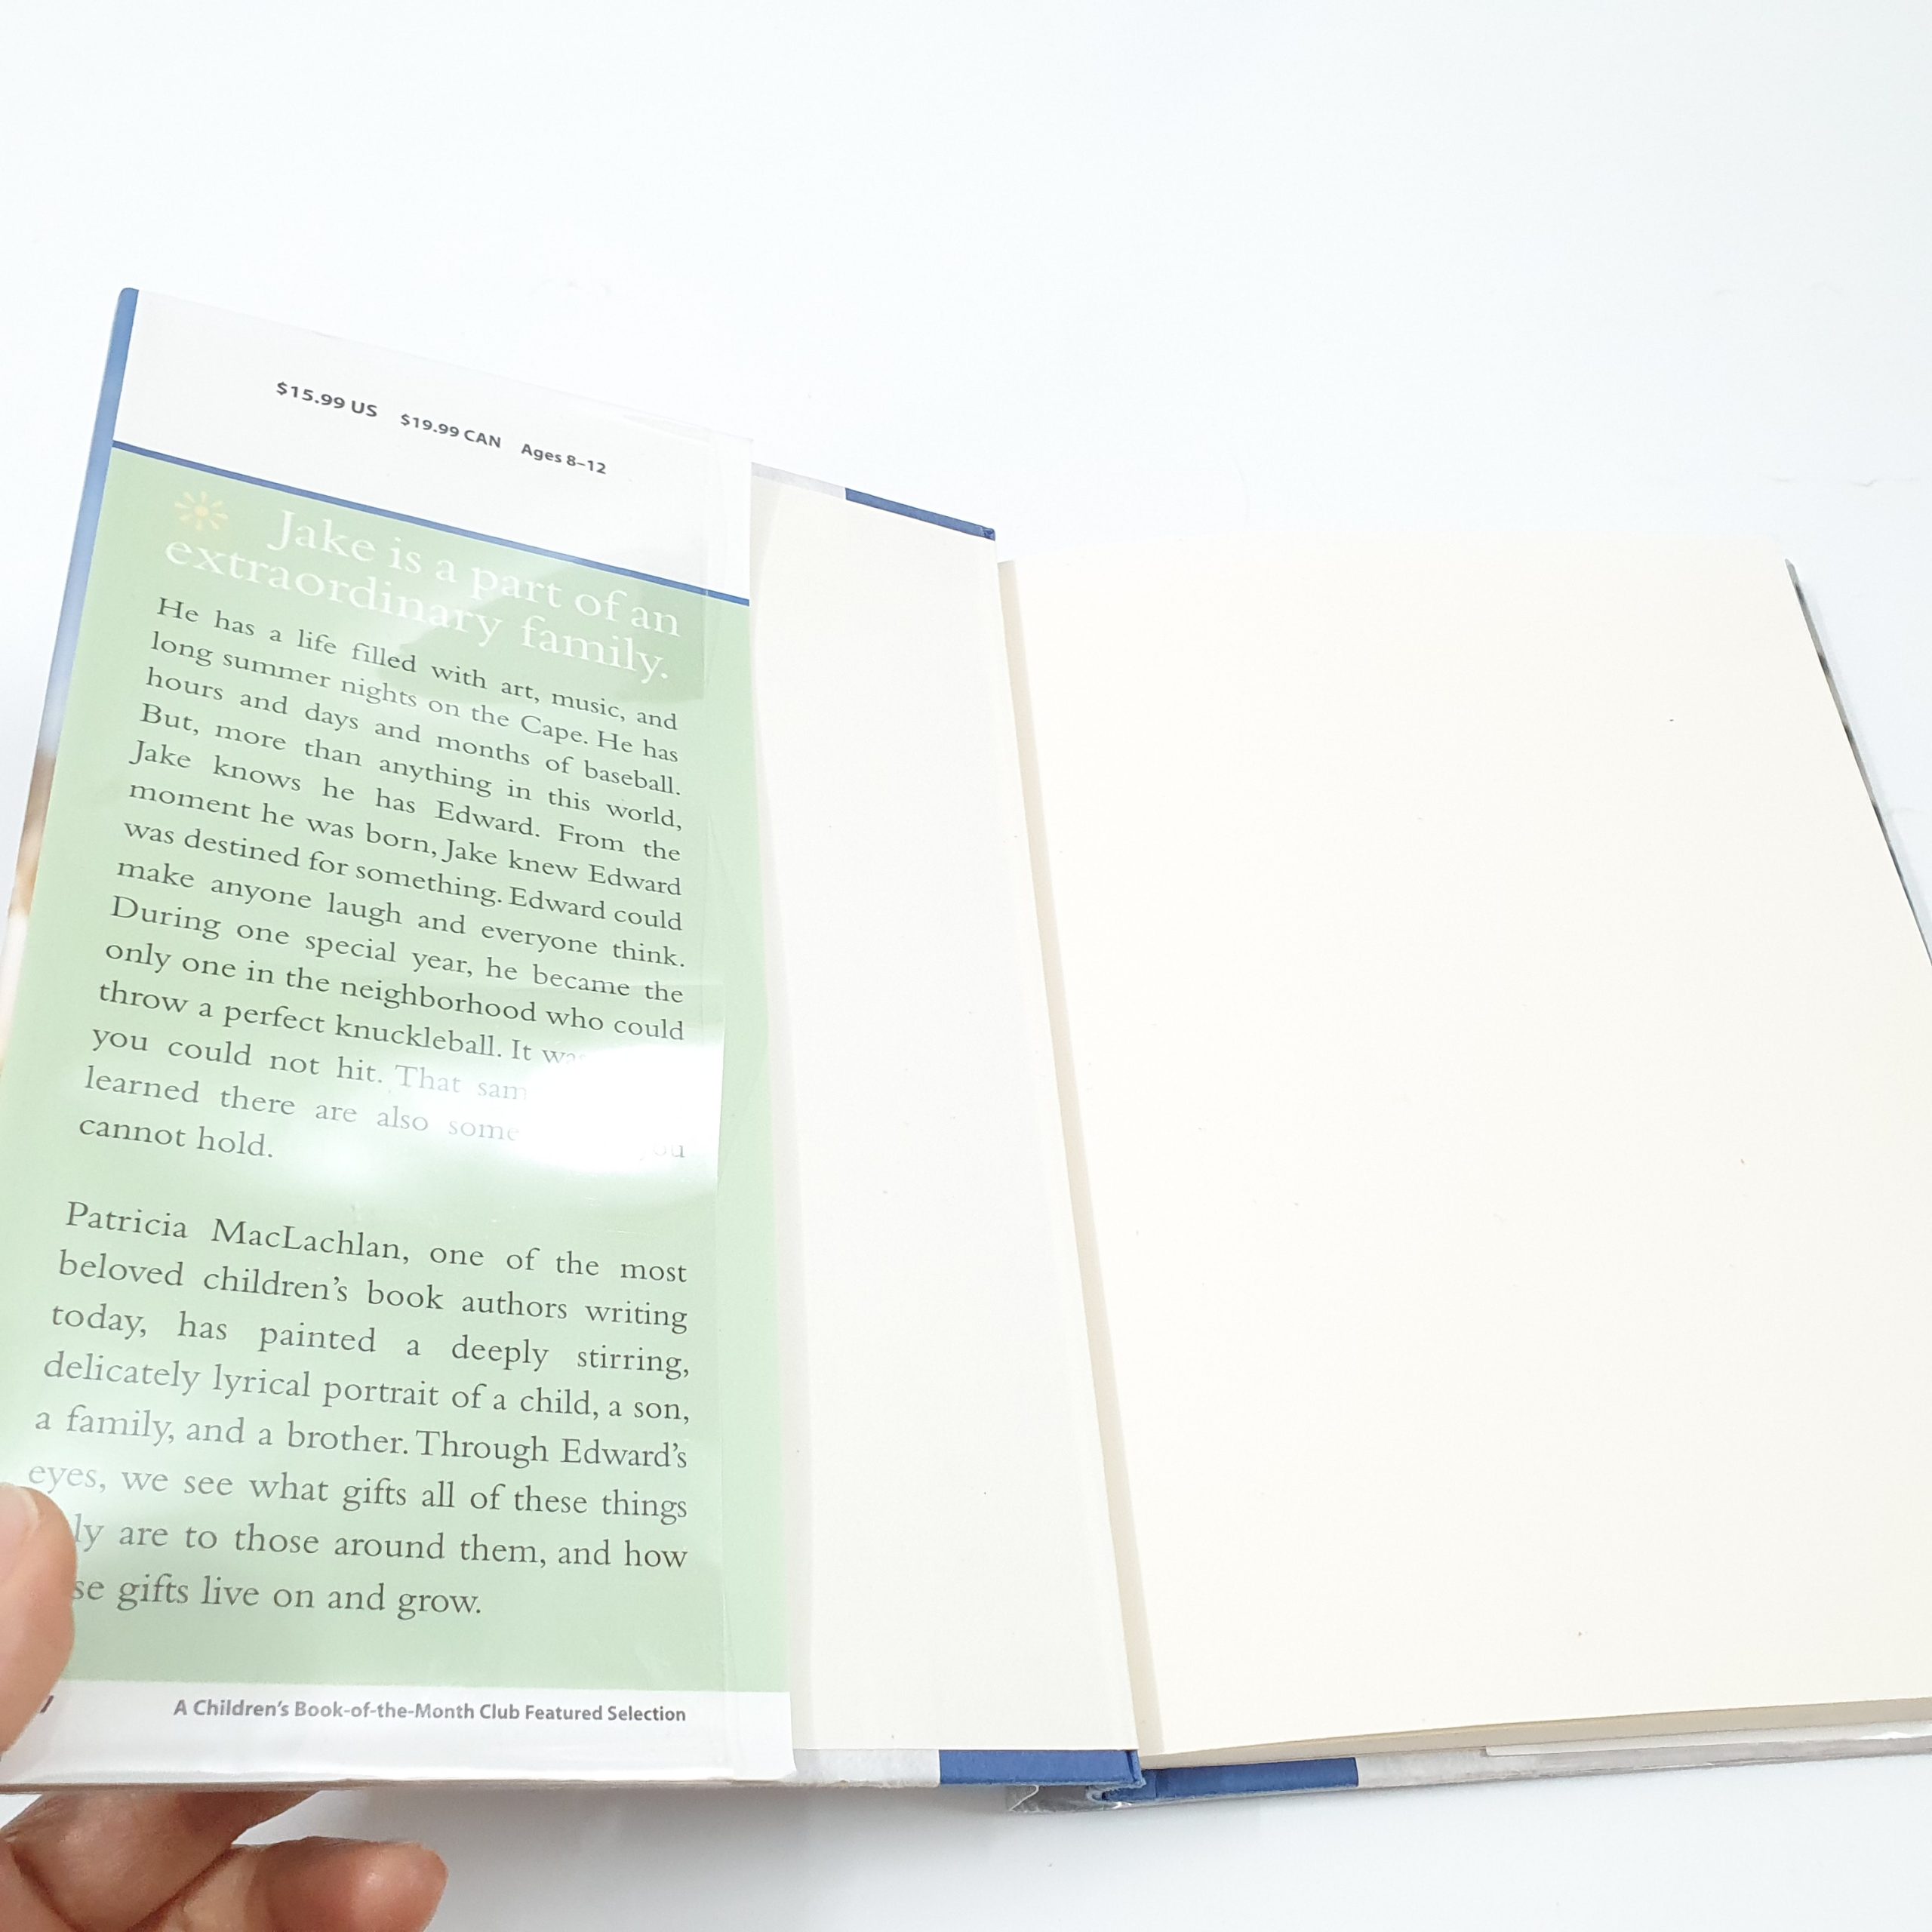 $15.99 US $19.99 CAN Ages 8–12
Jake is a part of an
extraordinary family.
He has a life filled with art, music, and
long summer nights on the Cape. He has
hours and days and months of baseball.
But, more than anything in this world,
Jake knows he has Edward. From the
moment he was born, Jake knew Edward
was destined for something. Edward could
make anyone laugh and everyone think.
During one special year, he became the
only one in the neighborhood who could
throw a perfect knuckleball. It
you could not hit. That
learned there are also
cannot hold.
Patricia MacLachlan, one of the most
beloved children's book authors writing
today, has painted a deeply stirring,
delicately lyrical portrait of a child, a son,
a family, and a brother. Through Edward's
eyes, we see what gifts all of these things
are to those around them, and how
gifts live on and grow.
A Children's Book-of-the-Month Club Featured Selection